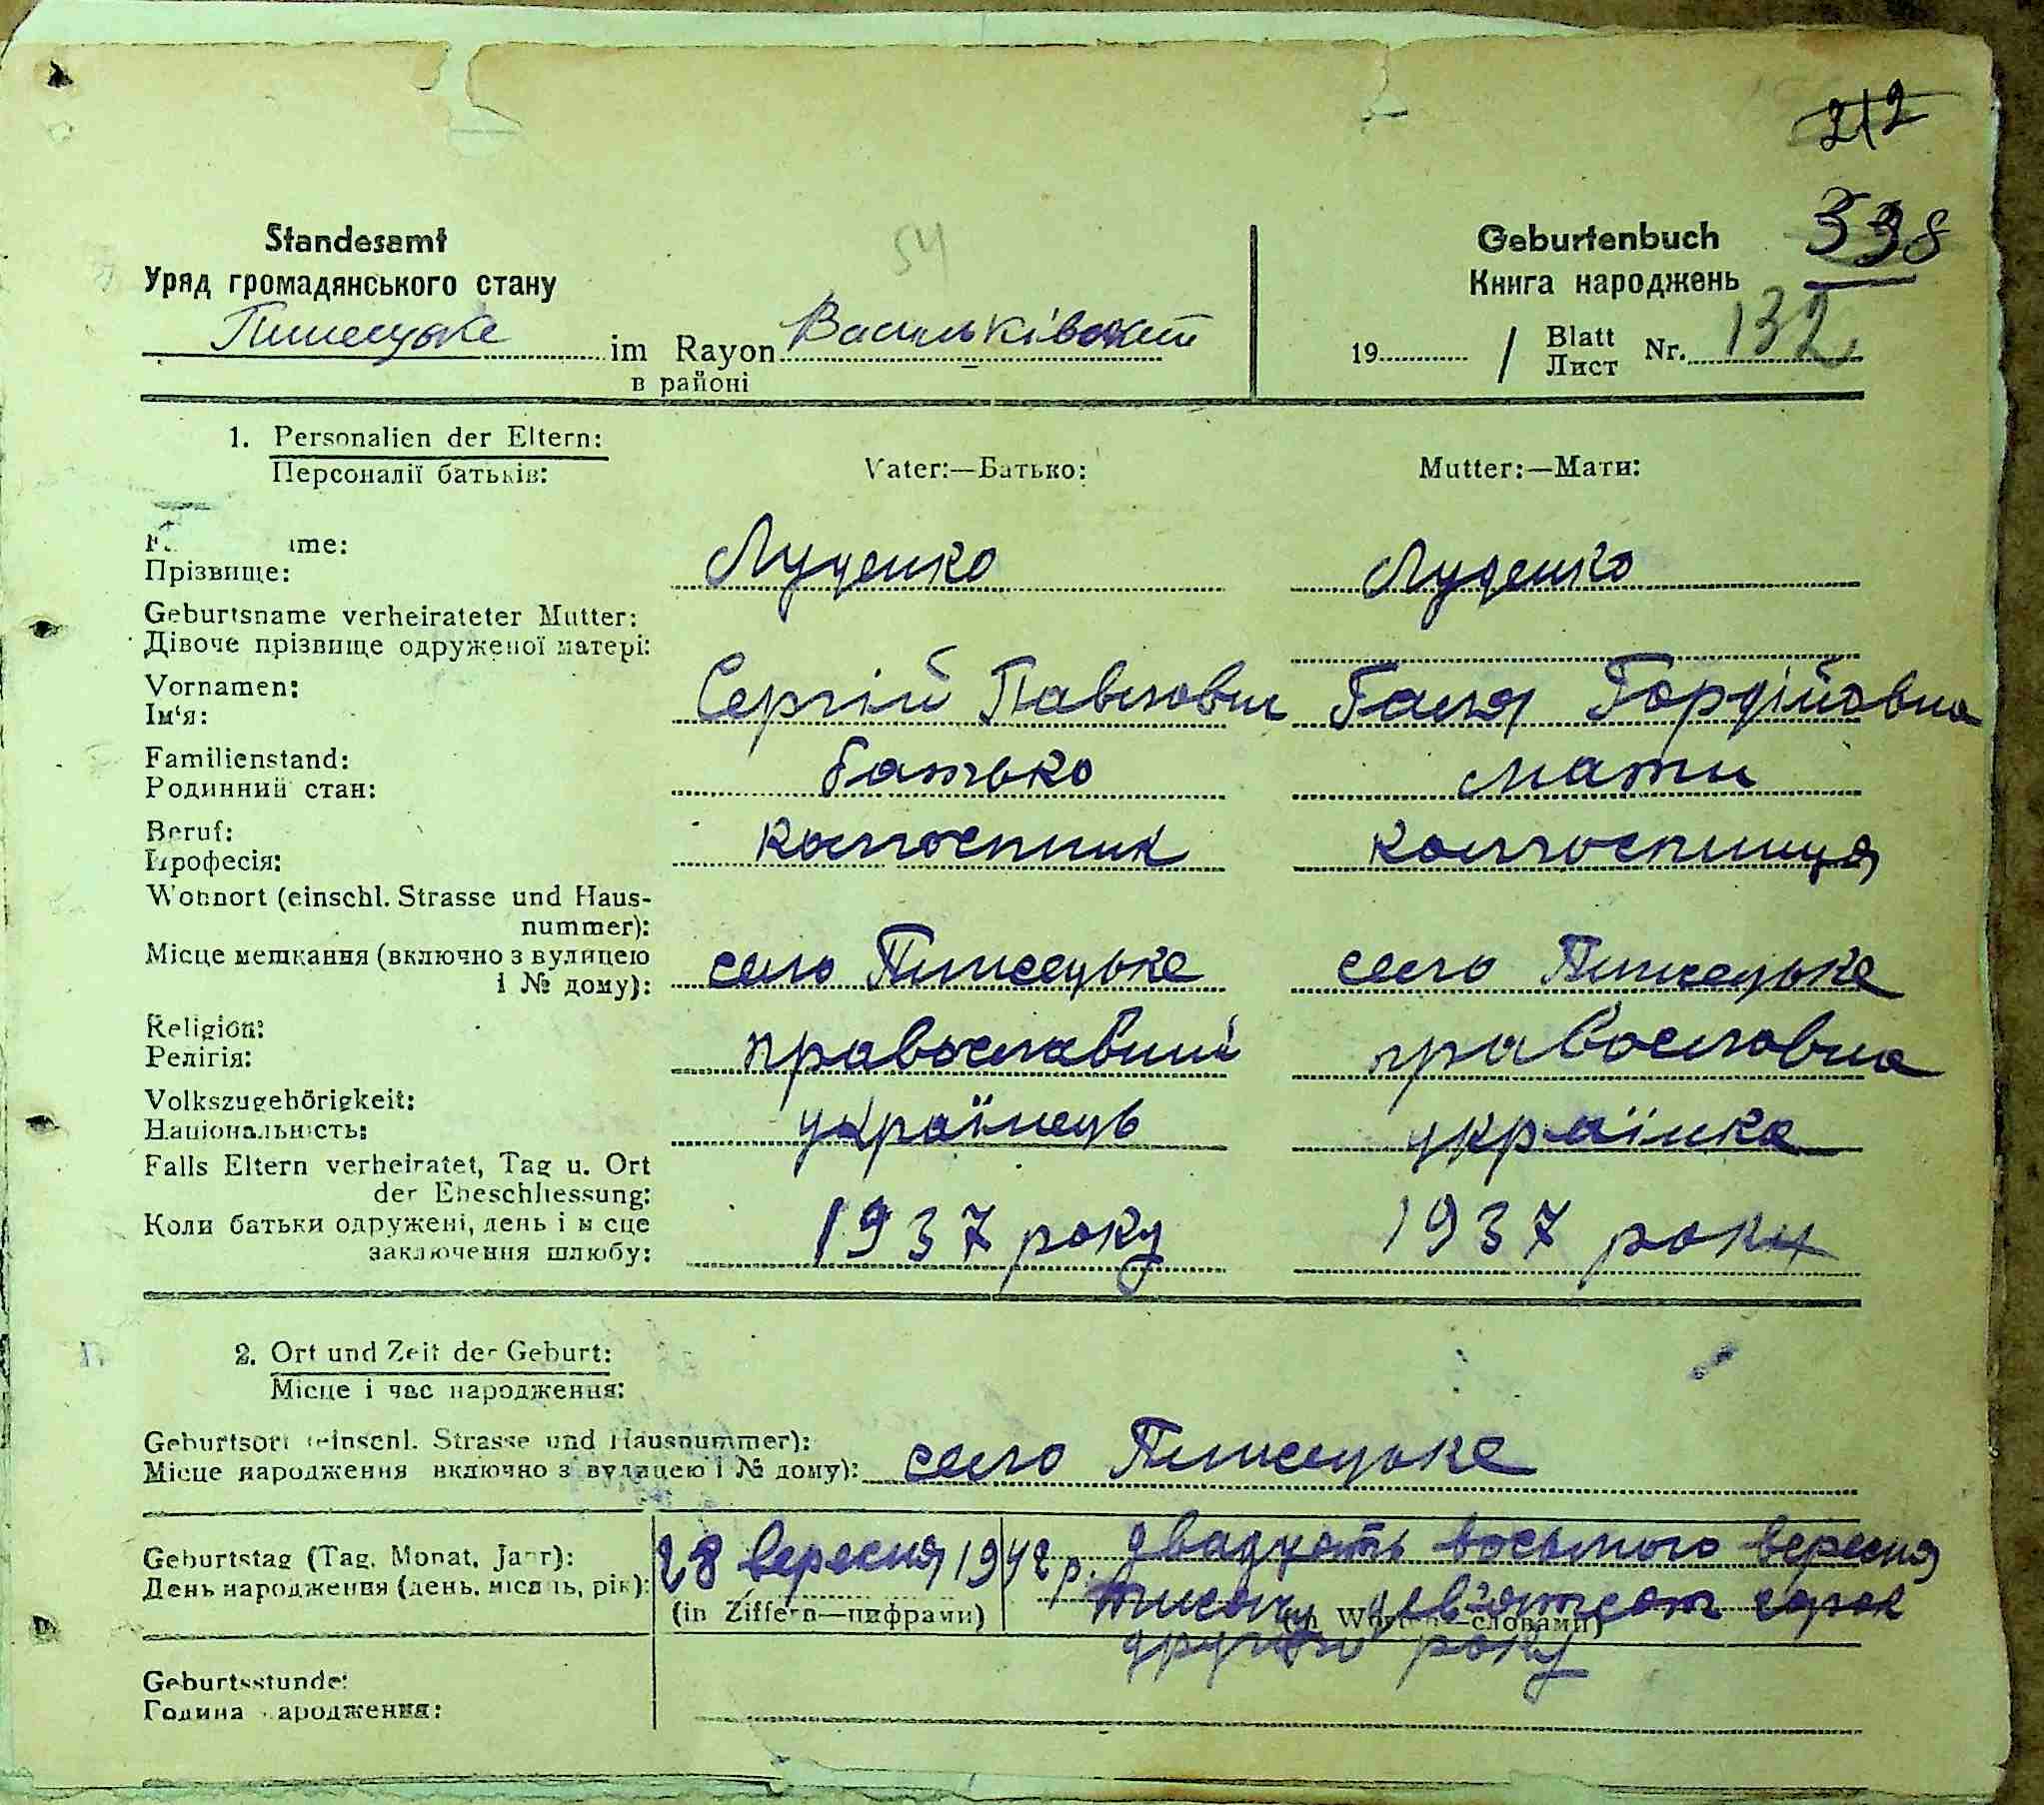 212
338
Standesamt
Уряд громадянського стану
54
Geburtenbuch
Книга народжень
Пинецьке im Rayon Васильківський
в районі
19 / Blatt Лист Nr. 132
1. Personalien der Eltern:
Персоналії батьків:
Vater:—Батько:
Mutter:—Мати:
Прізвище: Луценко Луценко
Geburtsname verheirateter Mutter:
Дівоче прізвище одруженої матері:
Vornamen:
Ім'я: Сергій Павлович Галя Гордіївна
Familienstand:
Родинний стан: батько мати
Beruf:
Професія: колгоспник колгоспниця
Wohnort (einschl. Strasse und Haus-
nummer):
Місце мешкання (включно з вулицею
і № дому): село село
Religion:
Релігія: православний православна
Volkszugehörigkeit:
Національність: українець українка
Falls Eltern verheiratet, Tag u. Ort
der Eheschliessung:
Коли батьки одружені, день і місце
заключення шлюбу: 1937 року 1937 року
2. Ort und Zeit der Geburt:
Місце і час народження:
Geburtsort (einschl. Strasse und Hausnummer):
Місце народження включно з вулицею і № дому): село
Geburtstag (Tag, Monat, Jahr):
День народження (день, місяць, рік): 28 вересня 1942 р. двадцять восьмого вересня
тисячу дев'ятсот сорок
(in Ziffern—цифрами) (in Worten—словами)
другого року
Geburtsstunde:
Година народження: